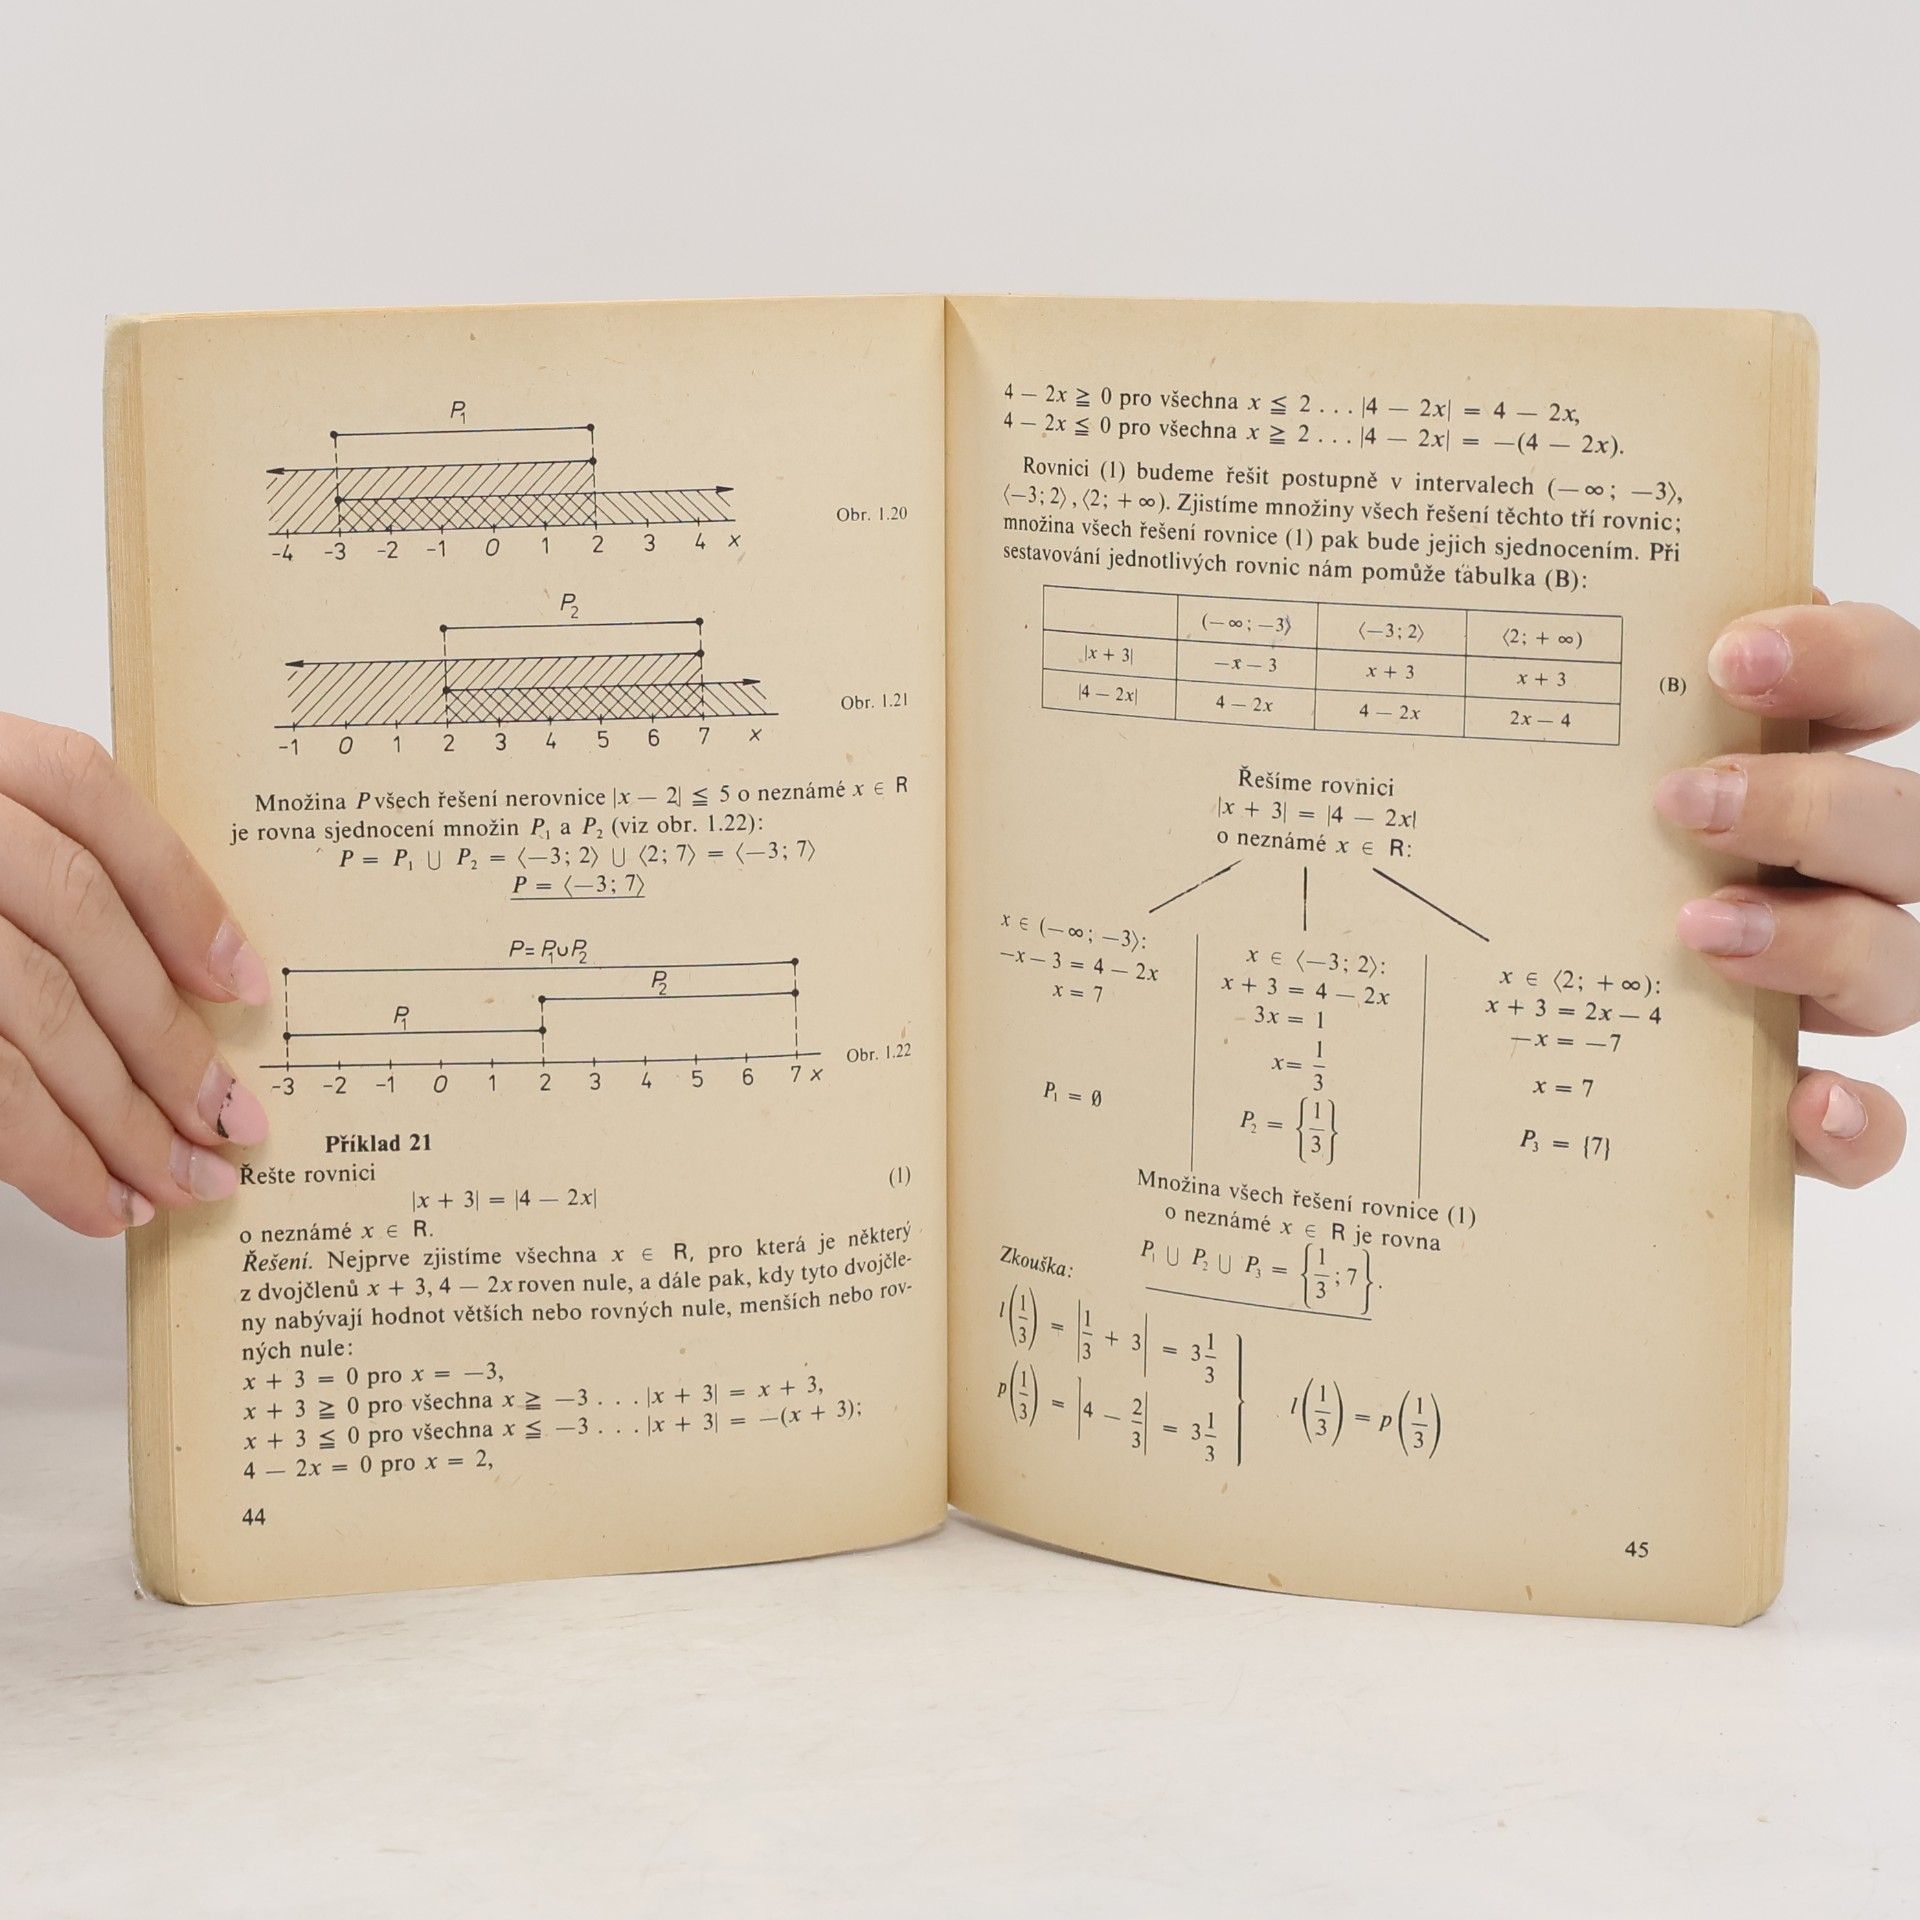 P₁
-4 -3 -2 -1 0 1 2 3 4 x
Obr. 1.20
P₂
-1 0 1 2 3 4 5 6 7 x
Obr. 1.21
Množina P všech řešení nerovnice |x — 2| ≦ 5 o neznámé x ∈ R
je rovna sjednocení množin P₁ a P₂ (viz obr. 1.22):
P = P₁ ∪ P₂ = ⟨−3; 2⟩ ∪ ⟨2; 7⟩ = ⟨−3; 7⟩
P = ⟨−3; 7⟩
P = P₁∪P₂
P₂
P₁
-3 -2 -1 0 1 2 3 4 5 6 7 x
Obr. 1.22
Příklad 21
Řešte rovnici
|x + 3| = |4 — 2x| (1)
o neznámé x ∈ R.
Řešení. Nejprve zjistíme všechna x ∈ R, pro která je některý
z dvojčlenů x + 3, 4 — 2x roven nule, a dále pak, kdy tyto dvojčle-
ny nabývají hodnot větších nebo rovných nule, menších nebo rov-
ných nule:
x + 3 = 0 pro x = −3,
x + 3 ≧ 0 pro všechna x ≧ −3 . . . |x + 3| = x + 3,
x + 3 ≦ 0 pro všechna x ≦ −3 . . . |x + 3| = −(x + 3);
4 — 2x = 0 pro x = 2,
44
4 — 2x ≧ 0 pro všechna x ≦ 2 . . . |4 — 2x| = 4 — 2x,
4 — 2x ≦ 0 pro všechna x ≧ 2 . . . |4 — 2x| = −(4 — 2x).
Rovnici (1) budeme řešit postupně v intervalech (−∞; −3⟩,
⟨−3; 2⟩, ⟨2; +∞). Zjistíme množiny všech řešení těchto tří rovnic;
množina všech řešení rovnice (1) pak bude jejich sjednocením. Při
sestavování jednotlivých rovnic nám pomůže tabulka (B):
(−∞; −3⟩ ⟨−3; 2⟩ ⟨2; +∞)
|x + 3| −x — 3 x + 3 x + 3
|4 — 2x| 4 — 2x 4 — 2x 2x — 4
(B)
Řešíme rovnici
|x + 3| = |4 — 2x|
o neznámé x ∈ R:
x ∈ (−∞; −3⟩:
−x — 3 = 4 — 2x
x = 7
P₁ = ∅
x ∈ ⟨−3; 2⟩:
x + 3 = 4 — 2x
3x = 1
x = 1/3
P₂ = {1/3}
x ∈ ⟨2; +∞):
x + 3 = 2x — 4
−x = −7
x = 7
P₃ = {7}
Množina všech řešení rovnice (1)
o neznámé x ∈ R je rovna
P₁ ∪ P₂ ∪ P₃ = {1/3; 7}.
Zkouška:
l(1/3) = |1/3 + 3| = 3 1/3
p(1/3) = |4 — 2/3| = 3 1/3
l(1/3) = p(1/3)
45